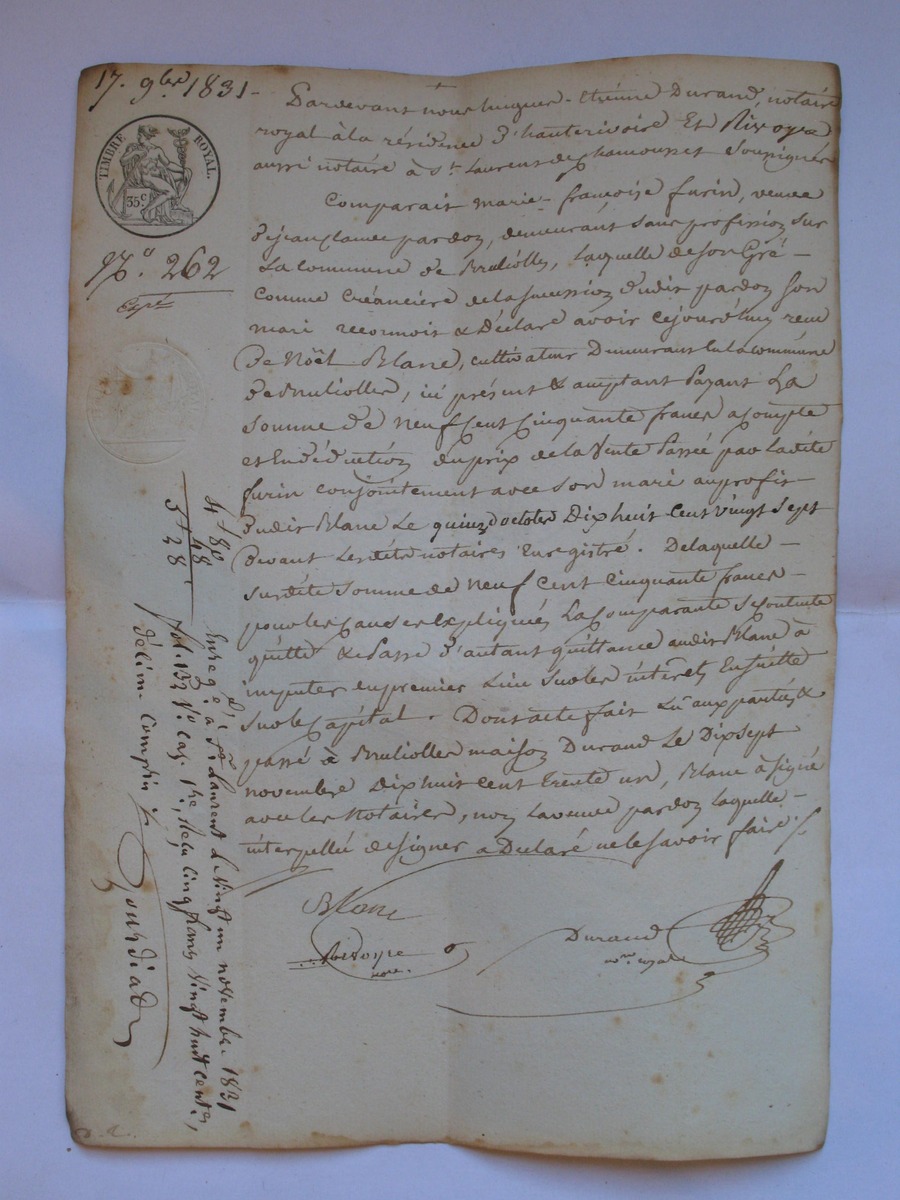 17. 9bre 1831 -
TIMBRE ROYAL.
35 c.
No. 262
Expé
Pardevant nous hugues-Etienne Durand, notaire
royal à la résidence d'hauterivoire Et Rivoyre
aussi notaire à St. Laurent de Chamousset Soussignés
Comparait marie-françoise furin, veuve
de jean Claude pardon, demeurant Sans profession Sur
La Commune de Brulioles, Laquelle de Son Gré -
Comme Créancière de la Succession dudit pardon Son
mari reconnoit & Déclare avoir Cejourd'huy recu
De Nöel Blanc, cultivateur Demeurant en la Commune
de Brulioles, ici présent & acceptant Payant La
Somme de neuf Cent Cinquante francs acompte
et En déduction du prix de la Vente Passée par Ladite
furin conjointement avec Son mari au profit
dudit Blanc Le quinze octobre Dix huit Cent vingt Sept
devant Lesdits notaires Enregistré. De laquelle -
Susdite Somme de neuf Cent Cinquante francs -
pour les Causes Expliquées La Comparante Se Contente
quitte & Passe d'autant quittance audit Blanc à
imputer en premier Lieu Sur les intérets Ensuitte
Sur le Capital. Dont acte fait Lû aux parties &
passé à Brulioles maison Durand Le Dix Sept
novembre Dix huit Cent trente un, Blanc à Signé
avec les Notaires, non La veuve pardon Laquelle -
interpellée de Signer a Déclaré ne le Savoir faire
Blanc
Rivoyre
nore.
Durand
nre. royal
4 + 80
48
5 + 28
Enregé. à St. Laurent Le Vingt un novembre 1831
fol. 132 Vo. Cas. 1re, Reçu Cinq francs Vingt huit centes,
décime Compris
Gourdiat